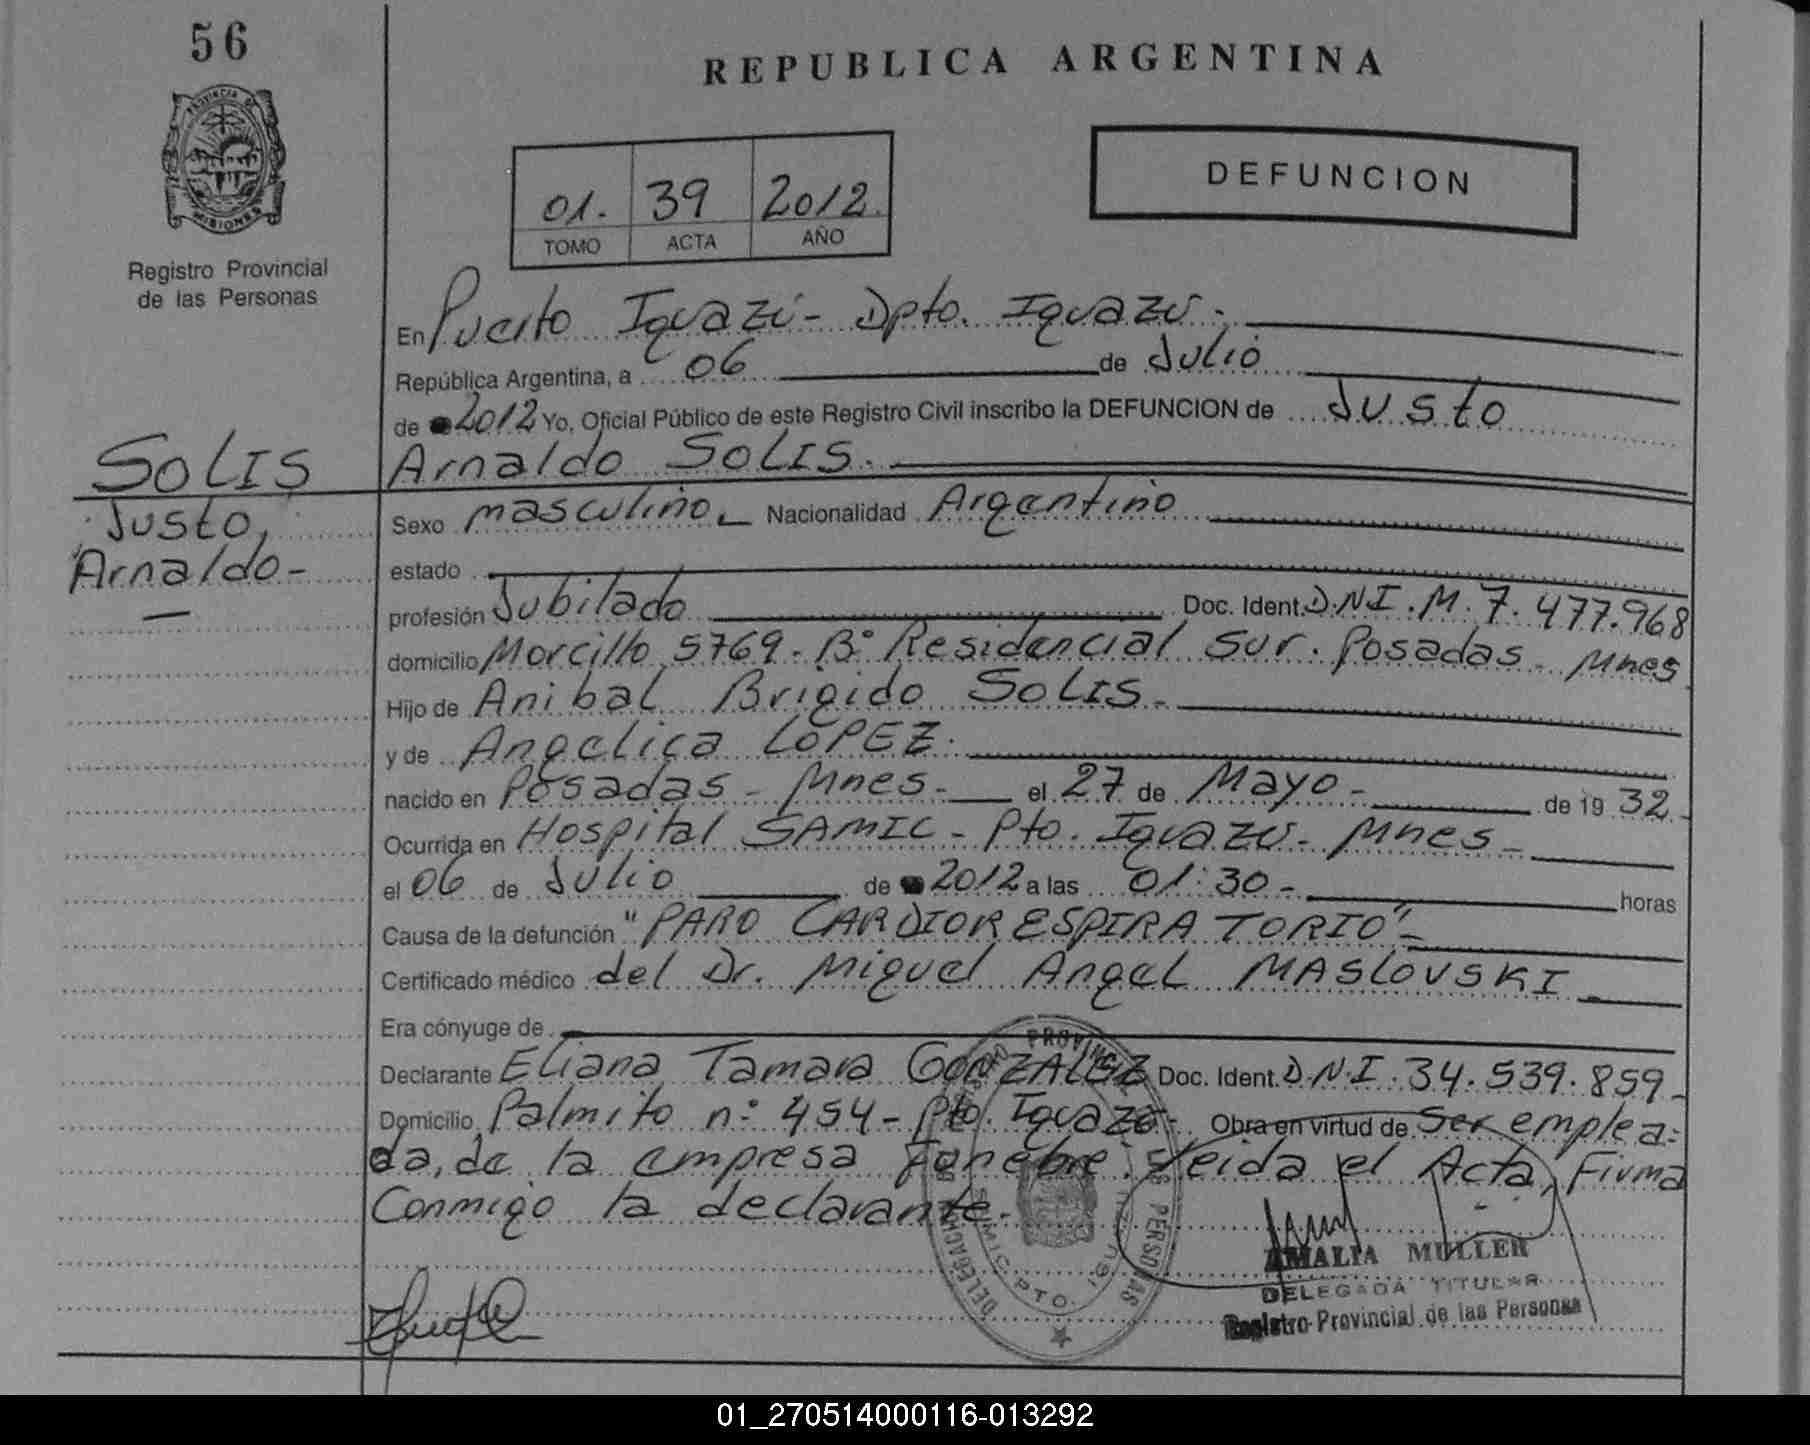 56
REPUBLICA ARGENTINA
PROVINCIA DE
MISIONES
Registro Provincial
de las Personas
01. 39 2012.
TOMO ACTA AÑO
DEFUNCION
En Puerto Iguazú - Dpto. Iguazú.
República Argentina, a 06 de Julio
de 2012 Yo, Oficial Público de este Registro Civil inscribo la DEFUNCION de Justo
Arnaldo SOLIS.
SOLIS
Justo,
Arnaldo-
Sexo masculino Nacionalidad Argentino
estado
profesión Jubilado Doc. Ident. D.N.I. M. 7.477.968
domicilio Morcillo 5769 - B° Residencial Sur. Posadas - Mnes
Hijo de Anibal Brigido SOLIS -
y de Angelica LOPEZ.
nacido en Posadas - Mnes - el 27 de Mayo - de 19 32.
Ocurrida en Hospital SAMIC - Pto. Iguazú - Mnes -
el 06 de Julio de 2012 a las 01:30 - horas
Causa de la defunción "PARO CARDIORESPIRATORIO" -
Certificado médico del Dr. Miguel Angel MASLOVSKI
Era cónyuge de
Declarante Eliana Tamara GONZALEZ Doc. Ident. D.N.I. 34.539.859 -
Domicilio Palmito n° 454 - Pto. Iguazú - Obra en virtud de Ser emplea-
da, de la empresa Funebre. Leida el Acta, Firma
Conmigo la declarante.
AMALIA MULLER
DELEGADA TITULAR
Registro Provincial de las Personas
01_270514000116-013292